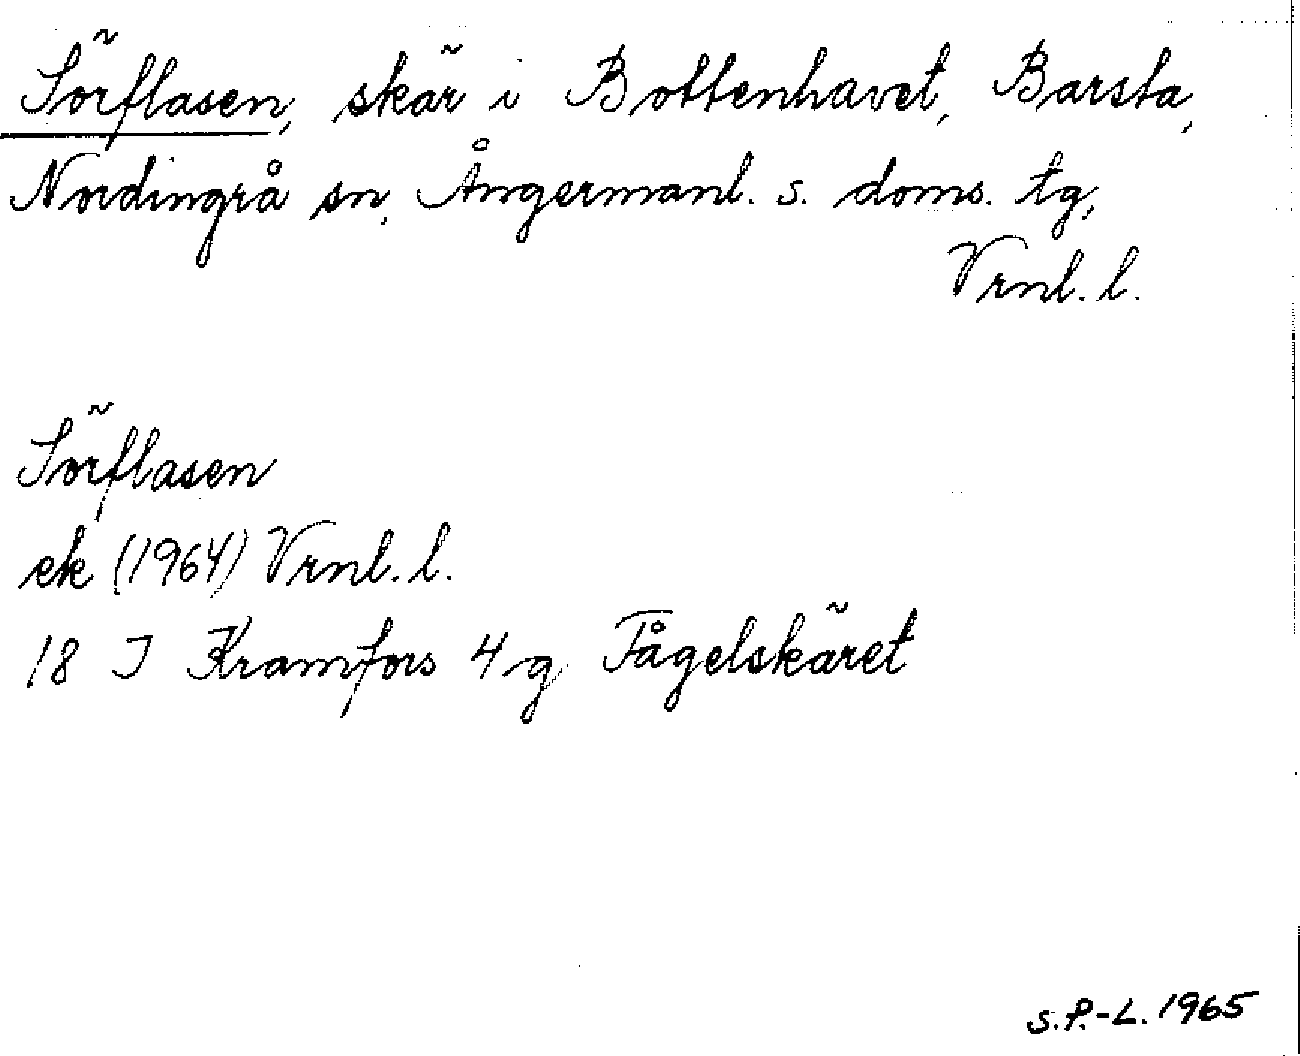 Sörflasen, skär i Bottenhavet, Barsta,
Nordingrå sn, Ångermanl. s. doms. tg,
Vrnl. l.
Sörflasen
ek (1964) Vrnl. l.
18 I Kramfors 4 g Fågelskäret
S.P.-L. 1965